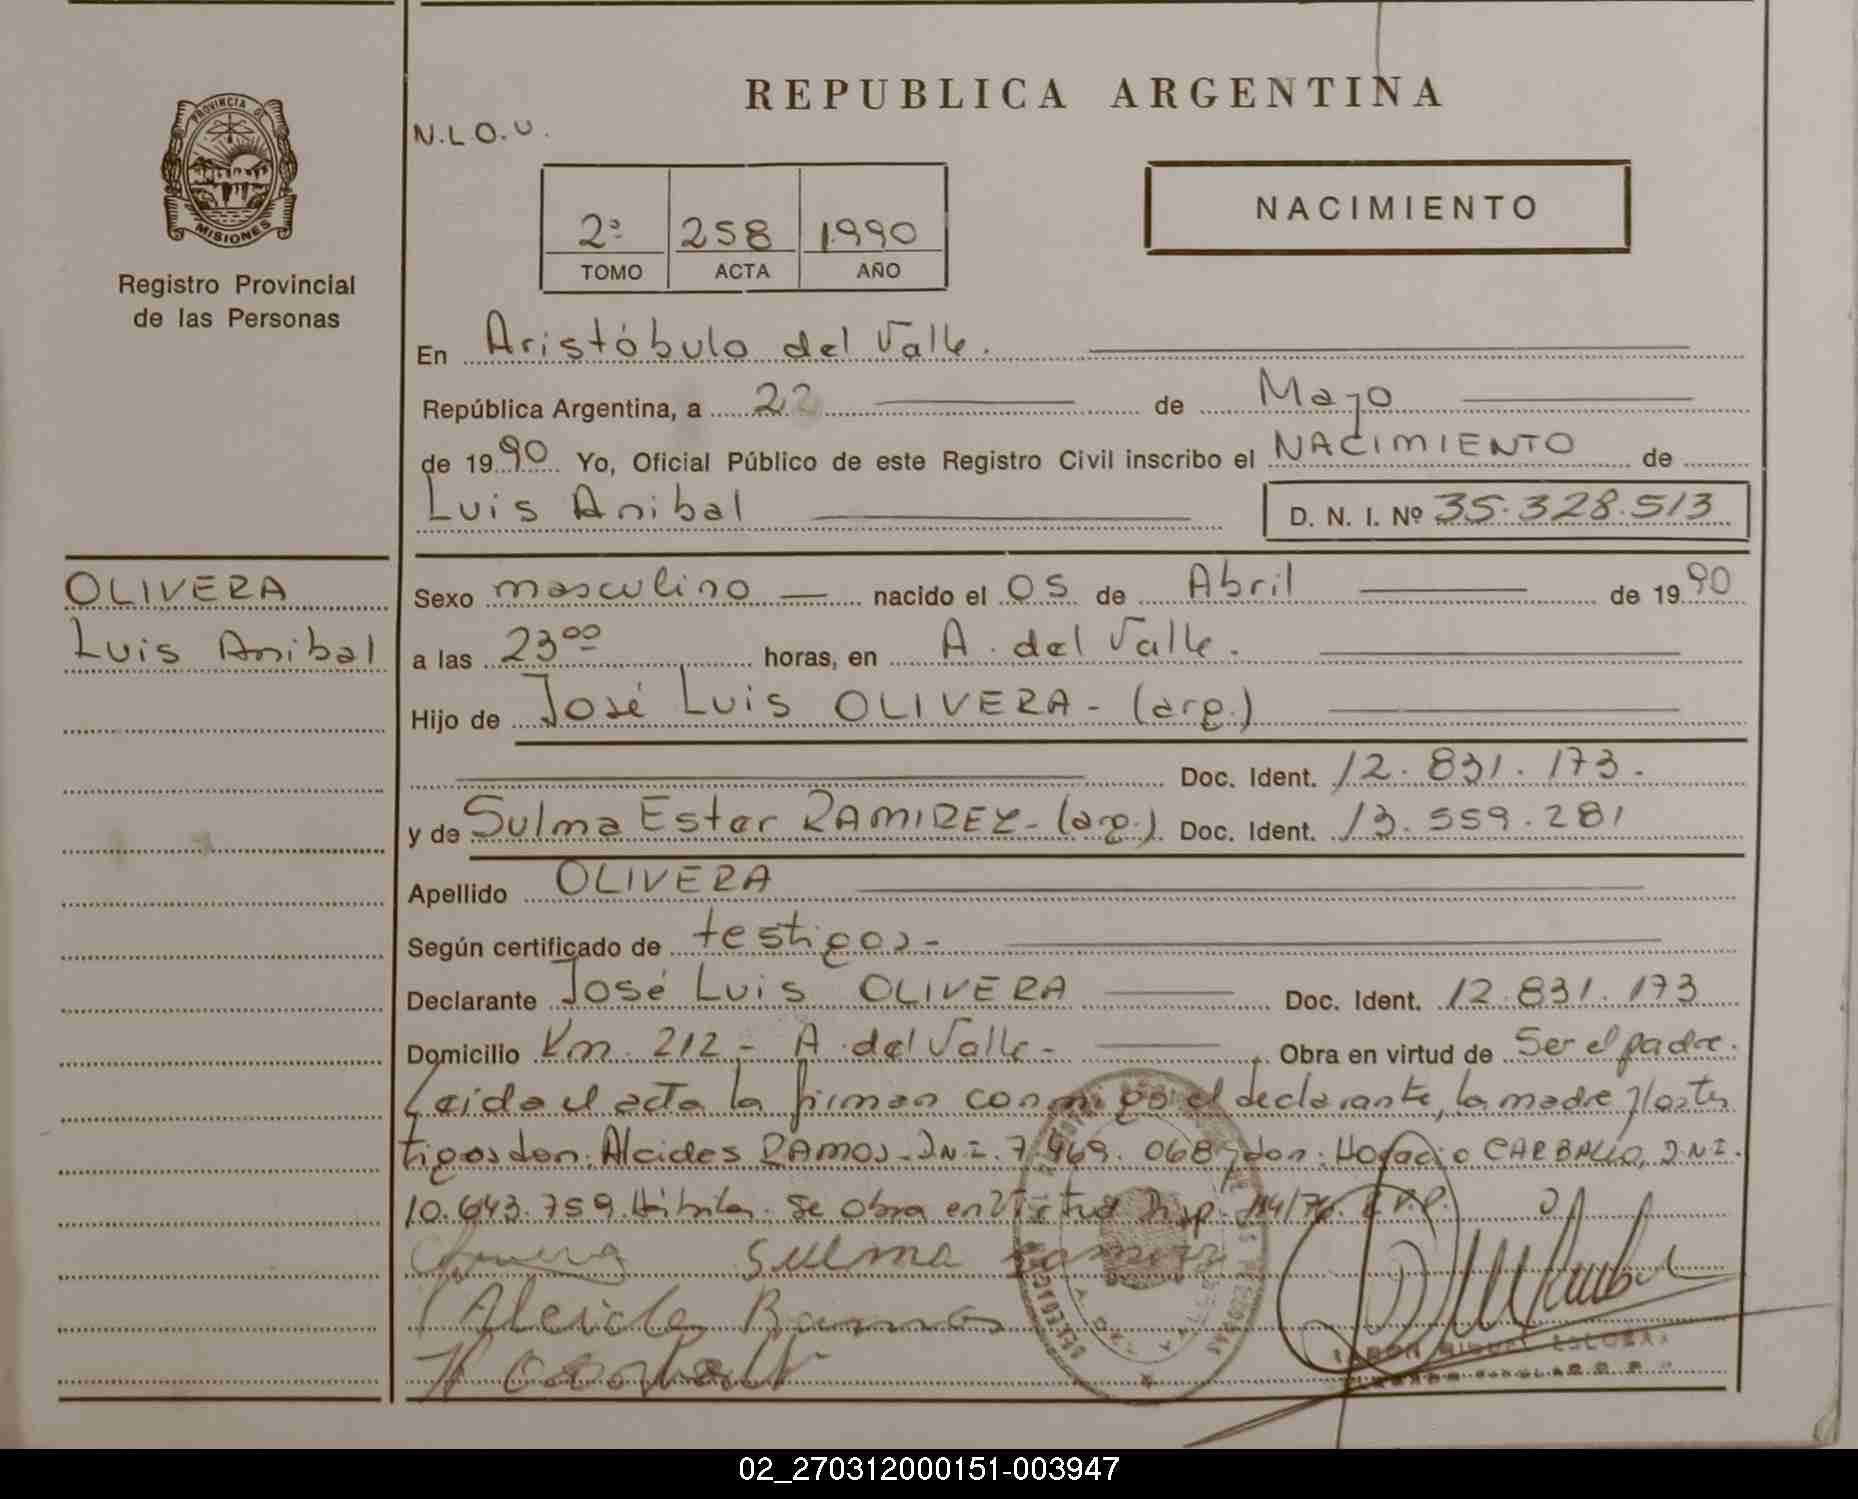 PROVINCIA DE
MISIONES
Registro Provincial
de las Personas
OLIVERA
Luis Anibal
REPUBLICA ARGENTINA
N.L.O.U.
NACIMIENTO
2º 258 1990
TOMO ACTA AÑO
En Aristóbulo del Valle.
República Argentina, a 22 de Mayo
de 1990 Yo, Oficial Público de este Registro Civil inscribo el NACIMIENTO de
Luis Anibal D. N. I. Nº 35.328.513
Sexo masculino nacido el 05 de Abril de 1990
a las 23 00 horas, en A. del Valle.
Hijo de José Luis OLIVERA - (arg.)
Doc. Ident. 12.831.173.
y de Sulma Ester RAMIREZ - (arg.) Doc. Ident. 13.559.281
Apellido OLIVERA
Según certificado de testigos -
Declarante José Luis OLIVERA Doc. Ident. 12.831.173
Domicilio Km. 212 - A. del Valle - Obra en virtud de Ser el padre.
Leida el acta la firman conmigo el declarante, la madre y los tes
tigos don: Alcides RAMOS - DNI. 7.469.068 y don: Horacio CARBALLO, DNI.
10.643.759. Se obra en virtud Disp. R.P.P.
Sulma Ramirez
Alcide Ramos
02_270312000151-003947